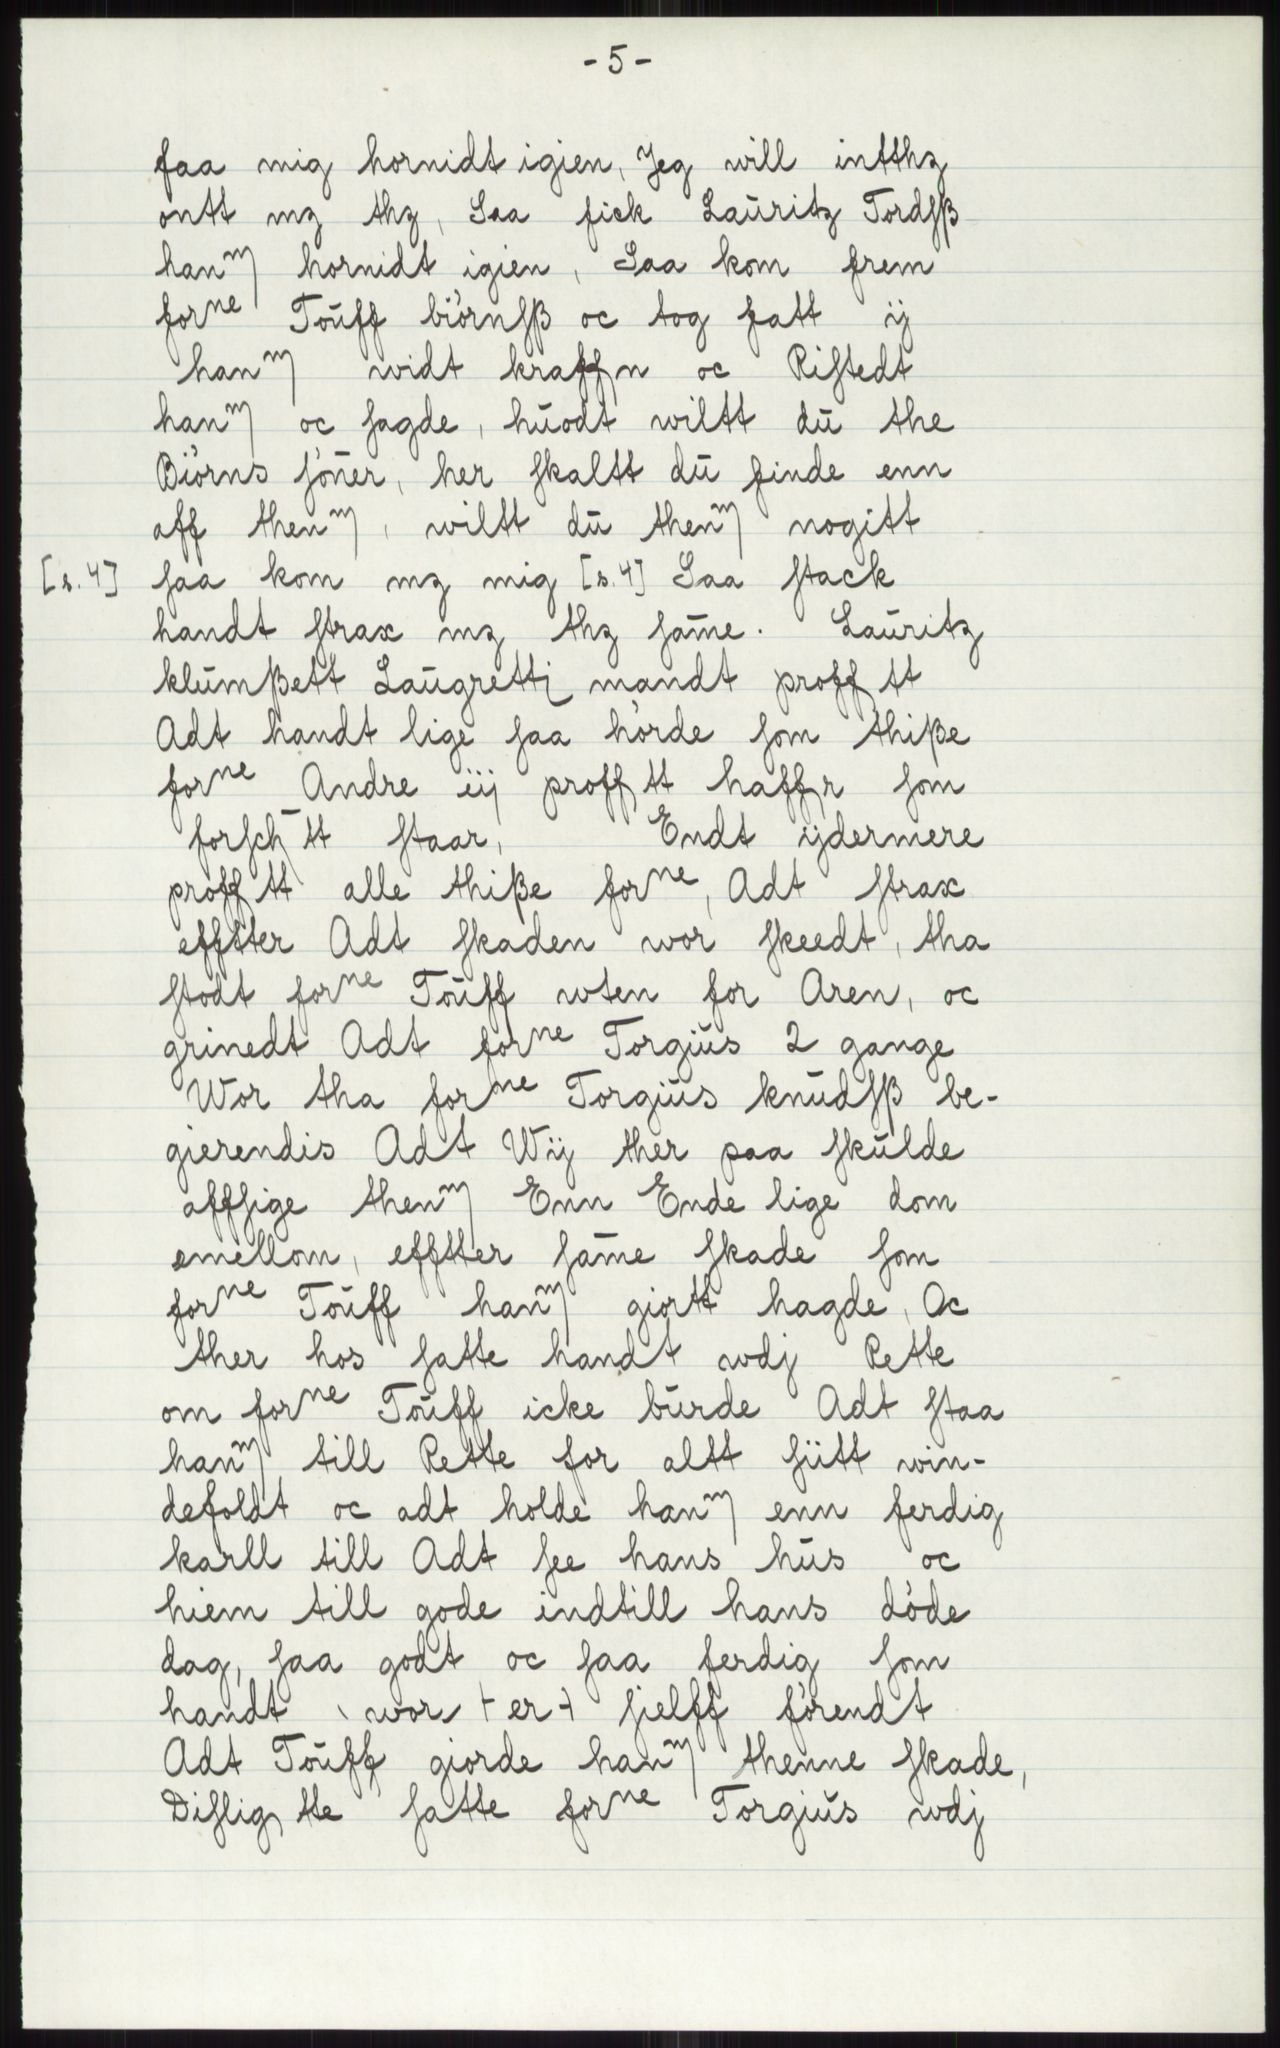 -5-
faa mig hornidt igien, Jeg will intthz
ontt mz thz, Saa fick Lauritz Tordsß
hanm hornidt igien, Saa kom frem
forne Toūff biörnsß oc tog fatt ij
hanm widt kraffn oc Ristedt
hanm oc sagde, hūodt wiltt dū the
Biörns söner, her skaltt dū finde enn
aff thenm, wiltt dū thenm nogitt
[s.4] saa kom mz mig [s.4] Saa stack
handt strax mz thz same. Lauritz
klūmßett Laūgretti mandt proff tt
Adt handt lige saa hörde som thiße
forne Andre iij proff tt haffr som
forsch tt staar, Endt ijdermere
proff tt alle thiße forne, Adt strax
effter Adt skaden wor skeedt, tha
stodt forne Toūff wten for Aren, oc
grinedt Adt forne Torgiūs 2 gange
Wor tha forne Torgiūs knūdsß be-
gierendis Adt Wij ther paa skūlde
affsige thenm Enn Ende lige dom
emellom, effter same skade som
forne Toūff hanm giortt hagde, Oc
ther hos satte handt wdj Rette
om forne Toūff icke būrde Adt staa
hanm till Rette for altt siitt win-
defoldt oc adt holde hanm enn ferdig
karll till Adt see hans hūs oc
hiem till gode indtill hans döde
dag, saa godt oc saa ferdig som
handt \ wor / + er + sielff förendt
Adt Toūff giorde hanm thenne skade,
Disligtte satte forne Torgiūs wdj